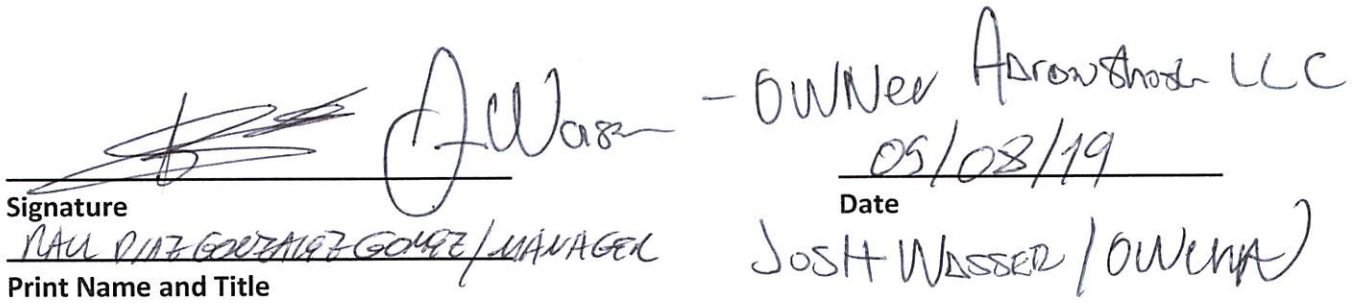 J Wasser - OWNER Arrowshade LLC
09/08/19
Signature Date
RAUL DIAZ GONZALEZ GOMEZ/MANAGER JOSH WASSER / OWNER
Print Name and Title